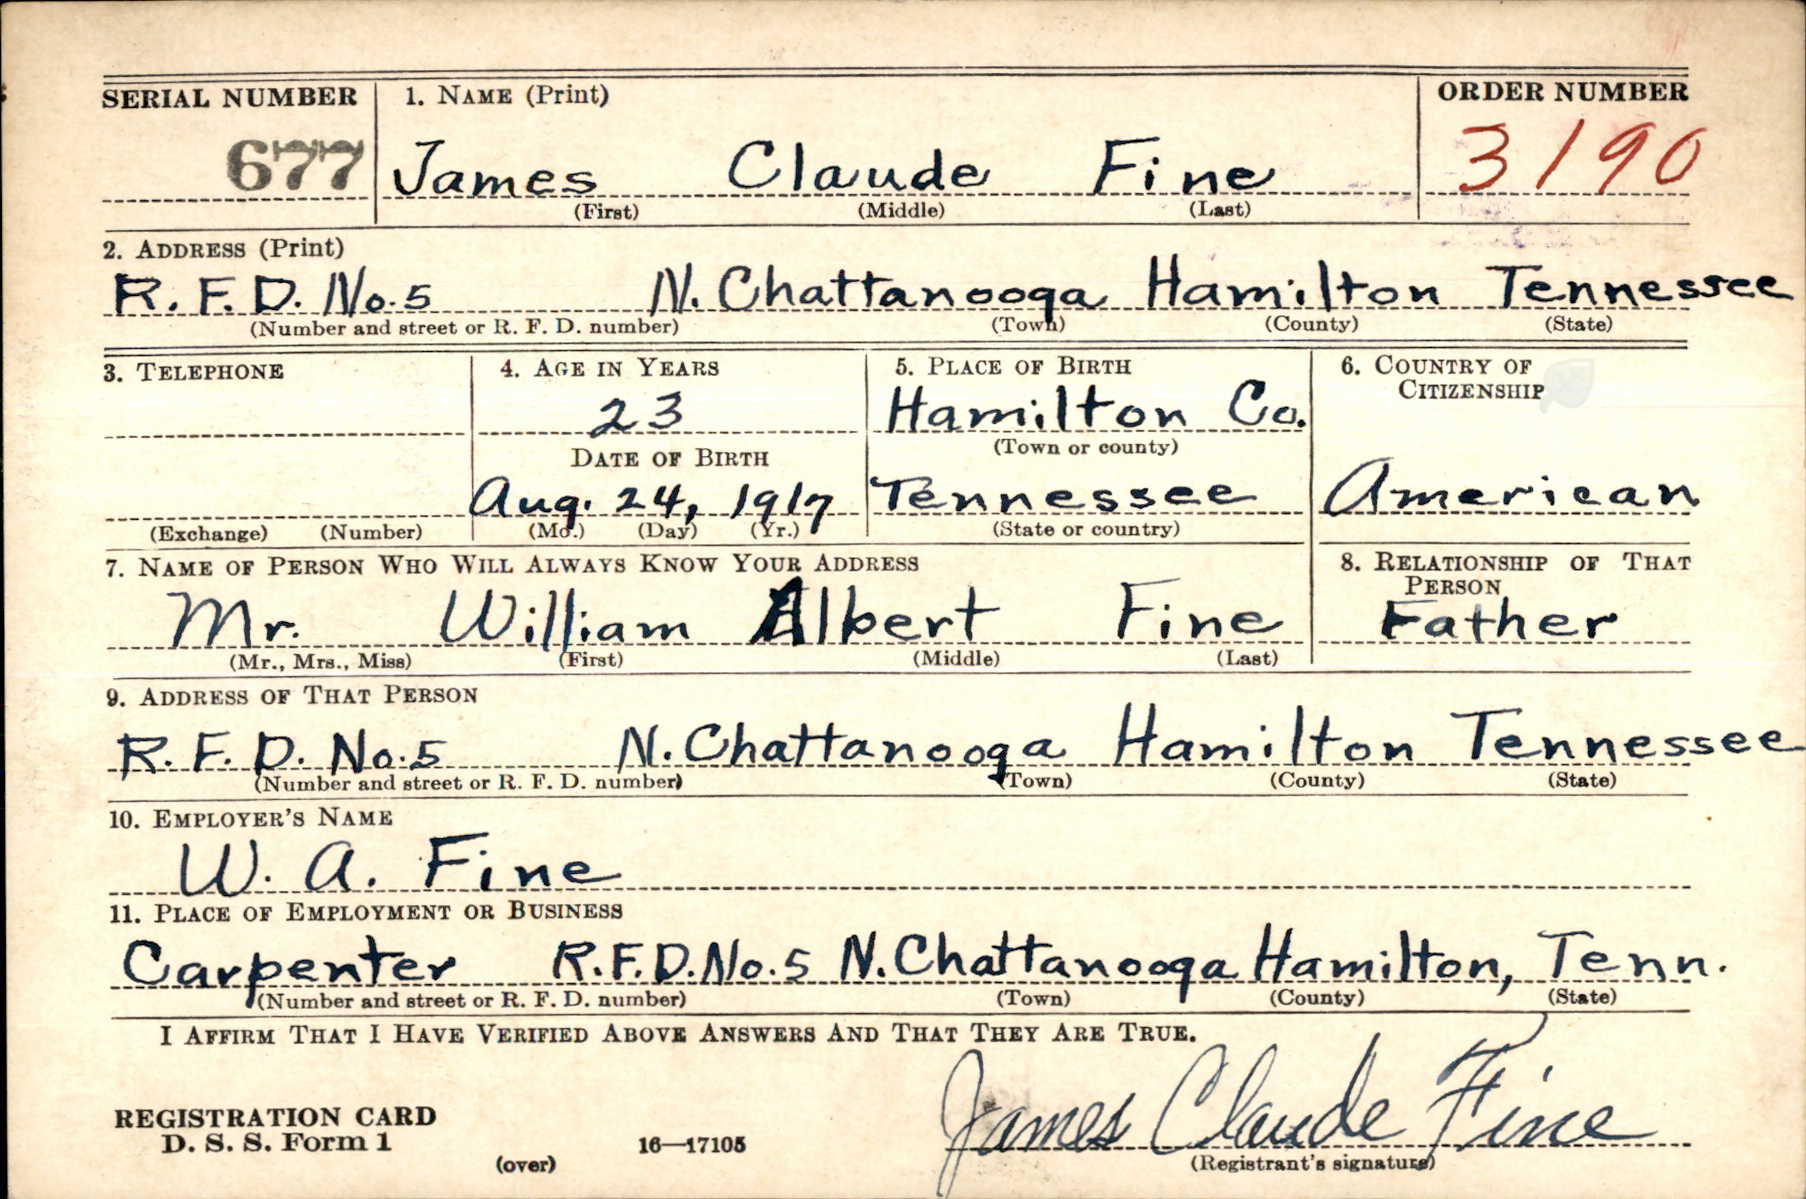 SERIAL NUMBER 1. NAME (Print) ORDER NUMBER
677 James Claude Fine 3190
(First) (Middle) (Last)
2. ADDRESS (Print)
R. F. D. No. 5 N. Chattanooga Hamilton Tennessee
(Number and street or R. F. D. number) (Town) (County) (State)
3. TELEPHONE 4. AGE IN YEARS 5. PLACE OF BIRTH 6. COUNTRY OF
CITIZENSHIP
23 Hamilton Co.
DATE OF BIRTH (Town or county)
Aug. 24, 1917 Tennessee American
(Exchange) (Number) (Mo.) (Day) (Yr.) (State or country)
7. NAME OF PERSON WHO WILL ALWAYS KNOW YOUR ADDRESS 8. RELATIONSHIP OF THAT
PERSON
Mr. William Albert Fine Father
(Mr., Mrs., Miss) (First) (Middle) (Last)
9. ADDRESS OF THAT PERSON
R. F. D. No. 5 N. Chattanooga Hamilton Tennessee
(Number and street or R. F. D. number) (Town) (County) (State)
10. EMPLOYER'S NAME
W. A. Fine
11. PLACE OF EMPLOYMENT OR BUSINESS
Carpenter R.F.D. No. 5 N. Chattanooga Hamilton, Tenn.
(Number and street or R. F. D. number) (Town) (County) (State)
I AFFIRM THAT I HAVE VERIFIED ABOVE ANSWERS AND THAT THEY ARE TRUE.
REGISTRATION CARD
D. S. S. Form 1 16—17105 James Claude Fine
(over) (Registrant's signature)